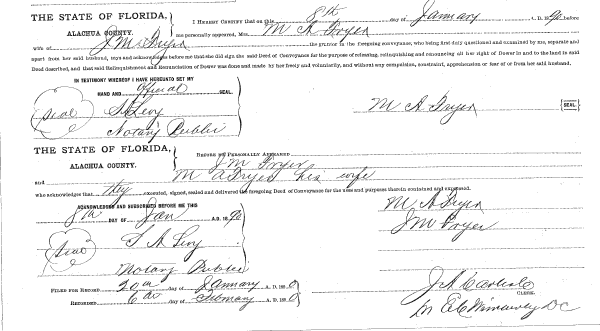 THE STATE OF FLORIDA,
ALACHUA COUNTY.
I HEREBY CERTIFY that on this 8th day of January A. D. 1890 before
me personally appeared, Mrs. M A Fryer
wife of J M Fryer the grantor in the foregoing conveyance, who being first duly questioned and examined by me, separate and
apart from her said husband, says and acknowledges before me that she did sign the said Deed of Conveyance for the purpose of releasing, relinquishing and renouncing all her right of Dower in and to the land in said
Deed described, and that said Relinquishment and Renunciation of Dower was done and made by her freely and voluntarily, and without any compulsion, constraint, apprehension or fear of or from her said husband.
IN TESTIMONY WHEREOF I HAVE HEREUNTO SET MY
HAND AND official SEAL.
Seal
S A Levy
Notary Public
M A Fryer [SEAL]
THE STATE OF FLORIDA,
ALACHUA COUNTY.
BEFORE ME PERSONALLY APPEARED
J M Fryer
and M A Fryer his wife
who acknowledge that they executed, signed, sealed and delivered the foregoing Deed of Conveyance for the uses and purposes therein contained and expressed.
ACKNOWLEDGED AND SUBSCRIBED BEFORE ME THIS
8th DAY OF Jan A. D. 1890
M A Fryer
J M Fryer
Seal
S A Levy
Notary Public
FILED FOR RECORD 20th day of January A. D. 1890
RECORDED 6th day of February A. D. 1890
J A Carlisle
CLERK.
DC